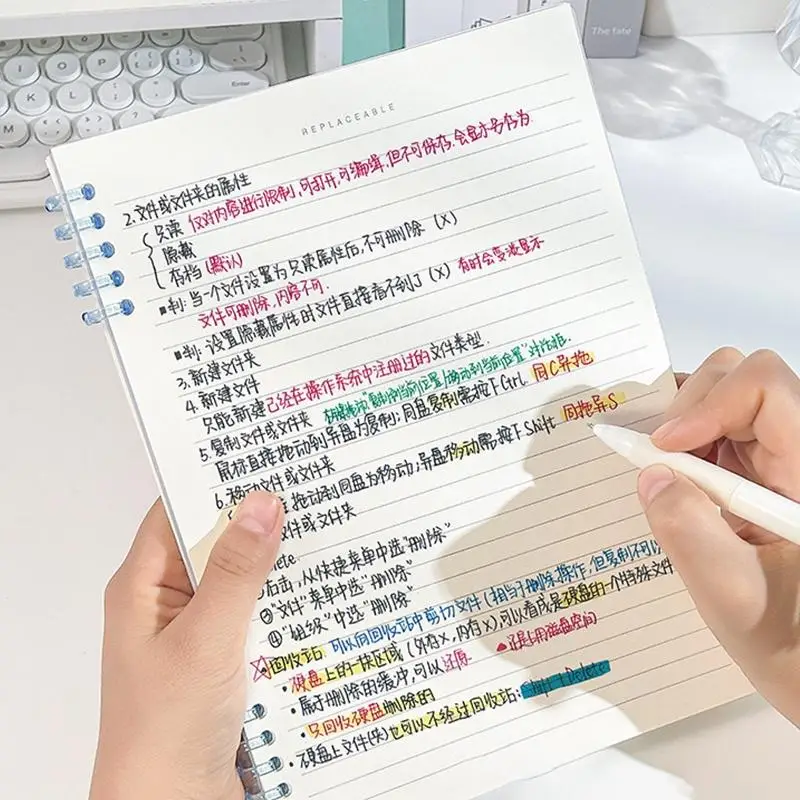 The fate
REPLACEABLE
2.文件或文件夹的属性
只读 仅对内容进行限制,可打开,可编辑,但不可保存,会显示另存为
隐藏
存档(默认)
■判:当一个文件设置为只读属性后,不可删除 (X)
文件可删除,内容不可.
■判:设置隐藏属性的文件直接看不到了(X) 有时会变淡显示
3.新建文件夹
4.新建文件
只能新建已经在操作系统中注册过的文件类型.
5.复制文件或文件夹 "复制到当前位置/移动到当前位置"对话框.
鼠标直接拖动到异盘为复制;同盘复制需按下Ctrl. 同C异拖
6.移动文件或文件夹
拖动到同盘为移动;异盘移动需按下Shift 同拖异S
文件或文件夹
右击,从快捷菜单中选"删除"
③"文件"菜单中选"删除"
④"组织"中选"删除"
回收站 可以向回收站中剪切文件(相当于删除操作,但复制不可以
•硬盘上的一块区域(外存X,内存X),可以看成是硬盘的一个特殊文件
•属于删除的缓冲,可以还原 •还是占用磁盘空间
•只回收硬盘删除的
•硬盘上文件(夹)也可以不经过回收站: Shift+Delete
Enter
I
O
P
K
L
M